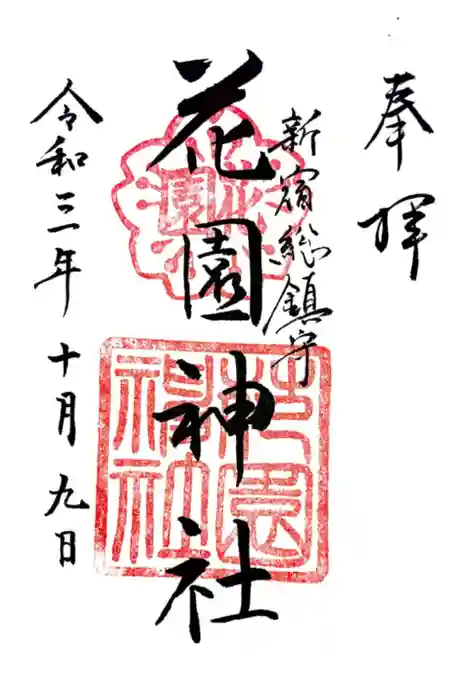 奉拝
新宿総鎮守
花園神社
令和三年十月九日
花園神社